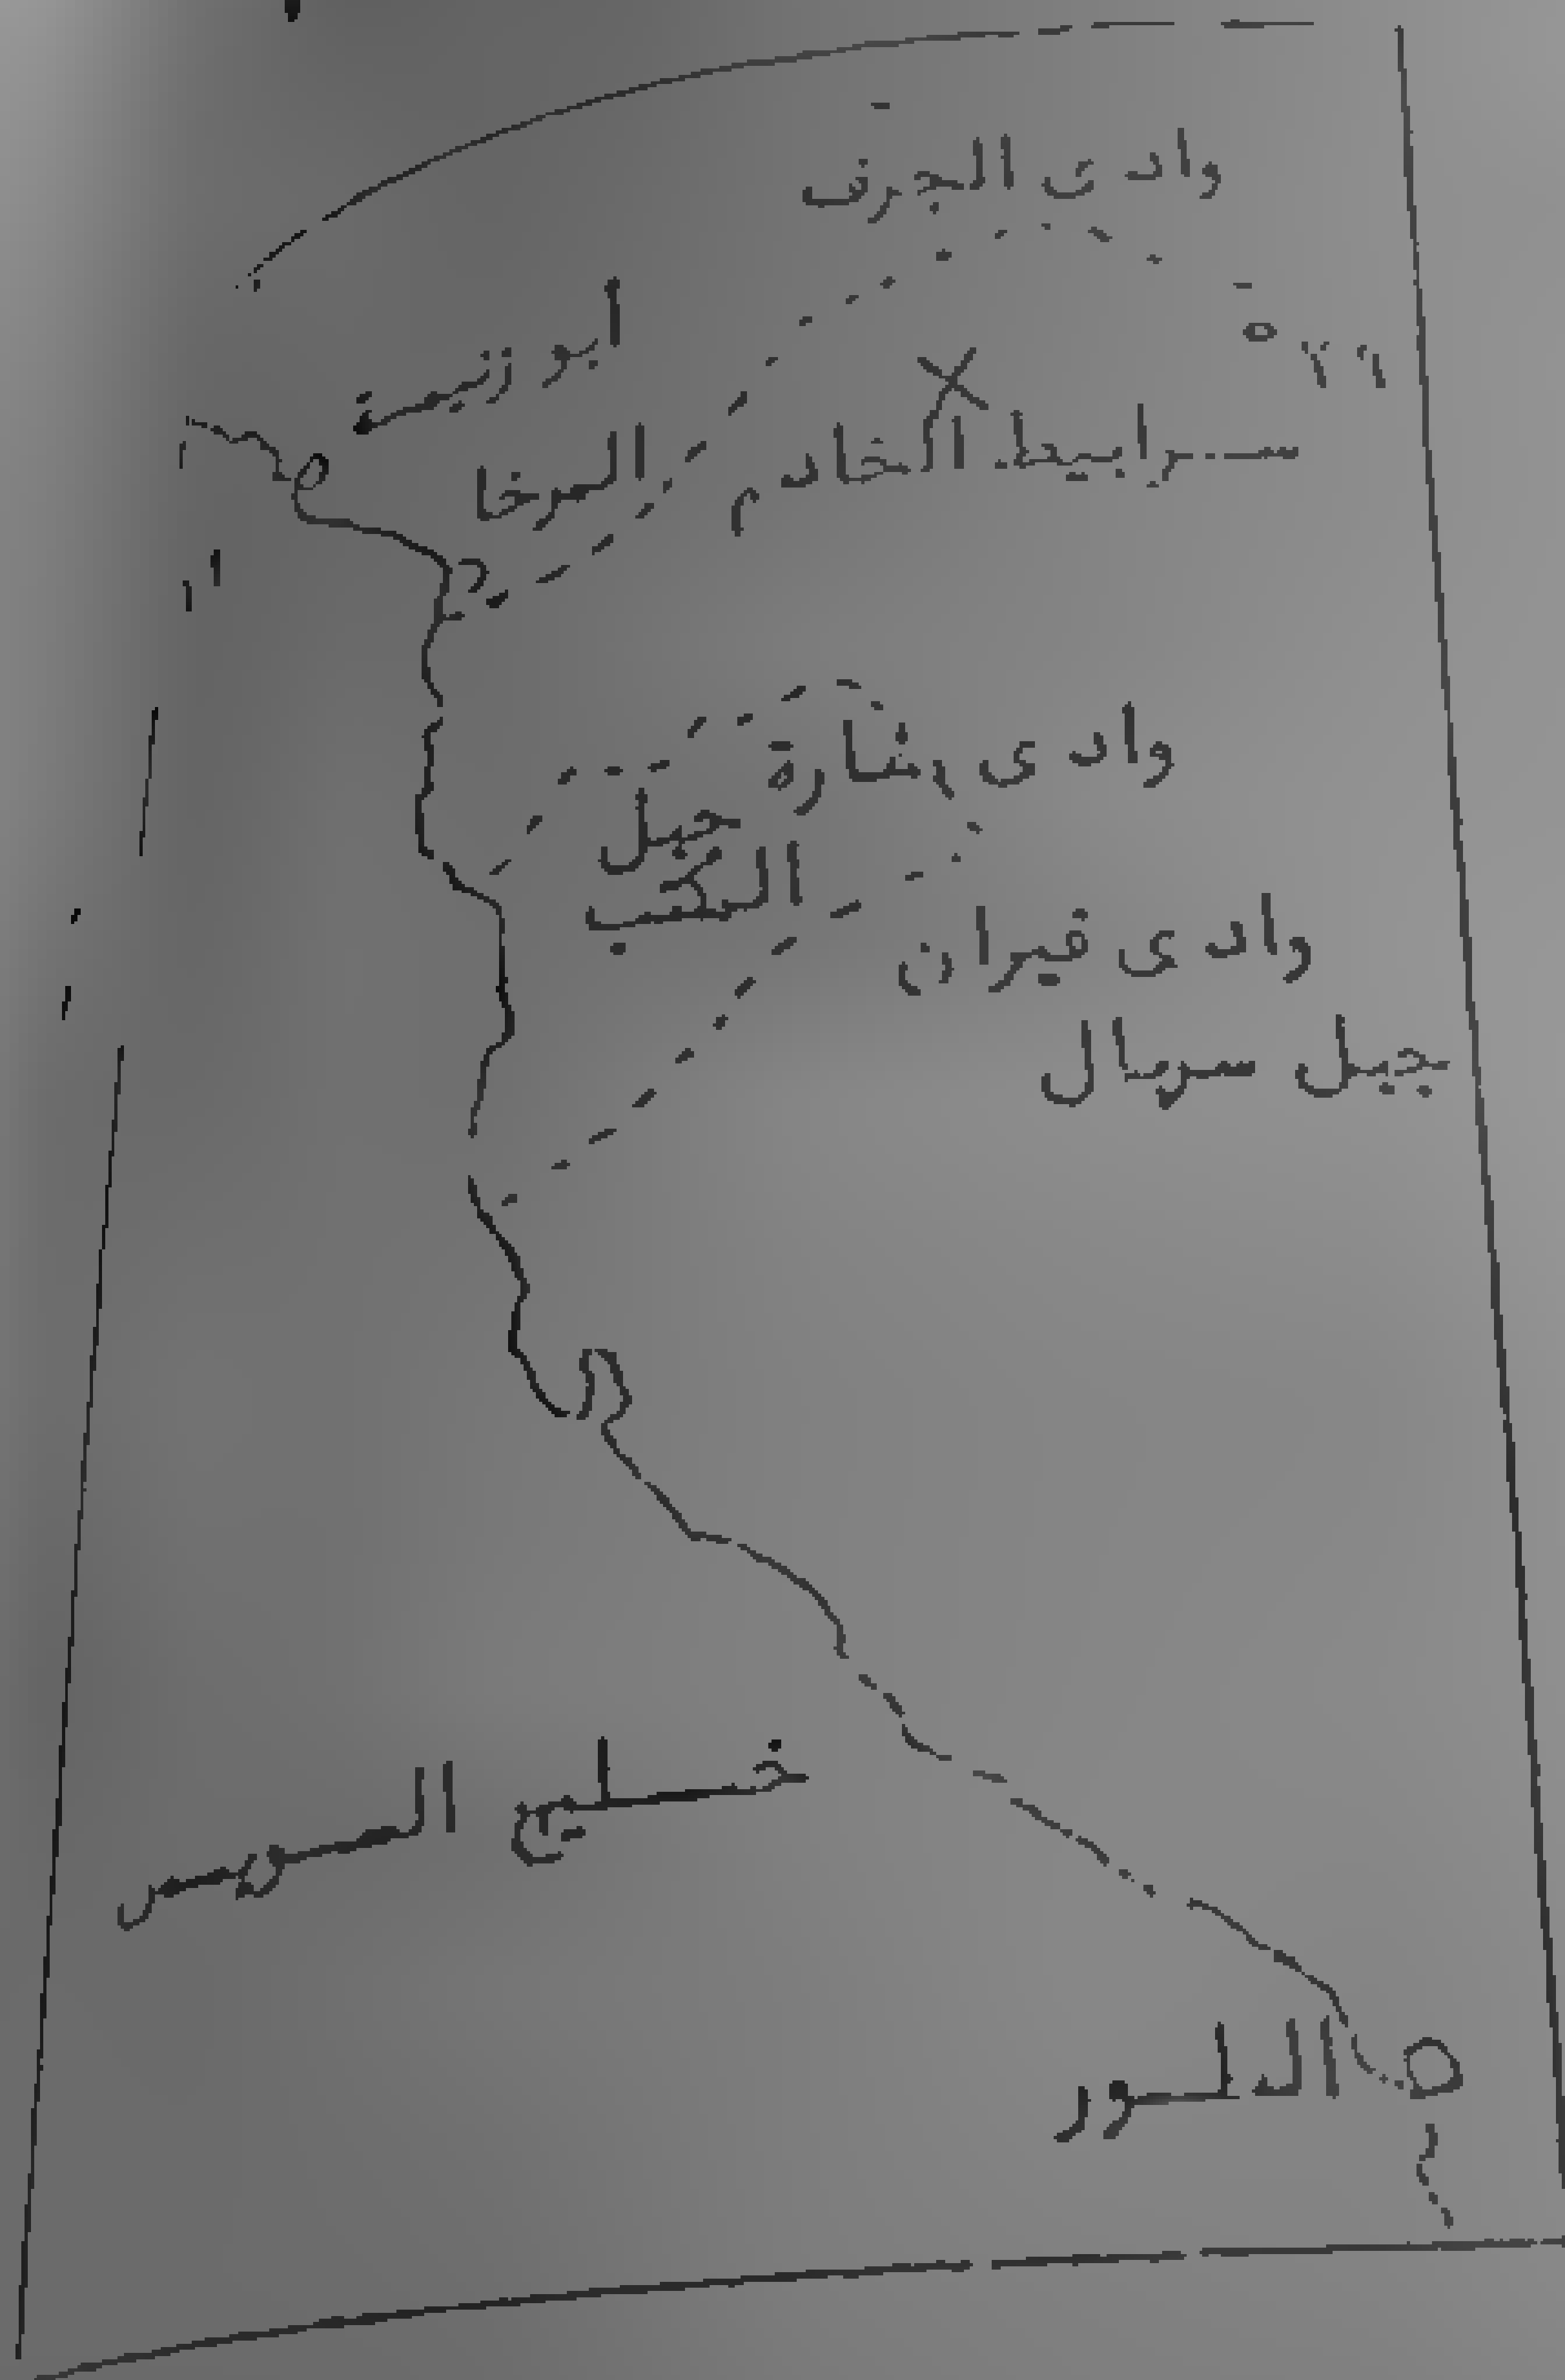 وادى الجرف
أبو زنيمة
سرابيط الخادم
المرخا
وادى مغارة
جبل
المكتب
وادى فيران
جبل سربال
خليج السويس
الطور